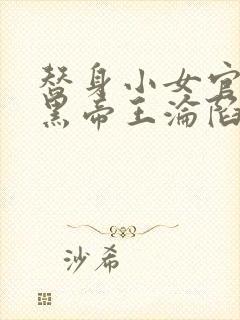 替身小女官
黑帝王淪陷
沙希